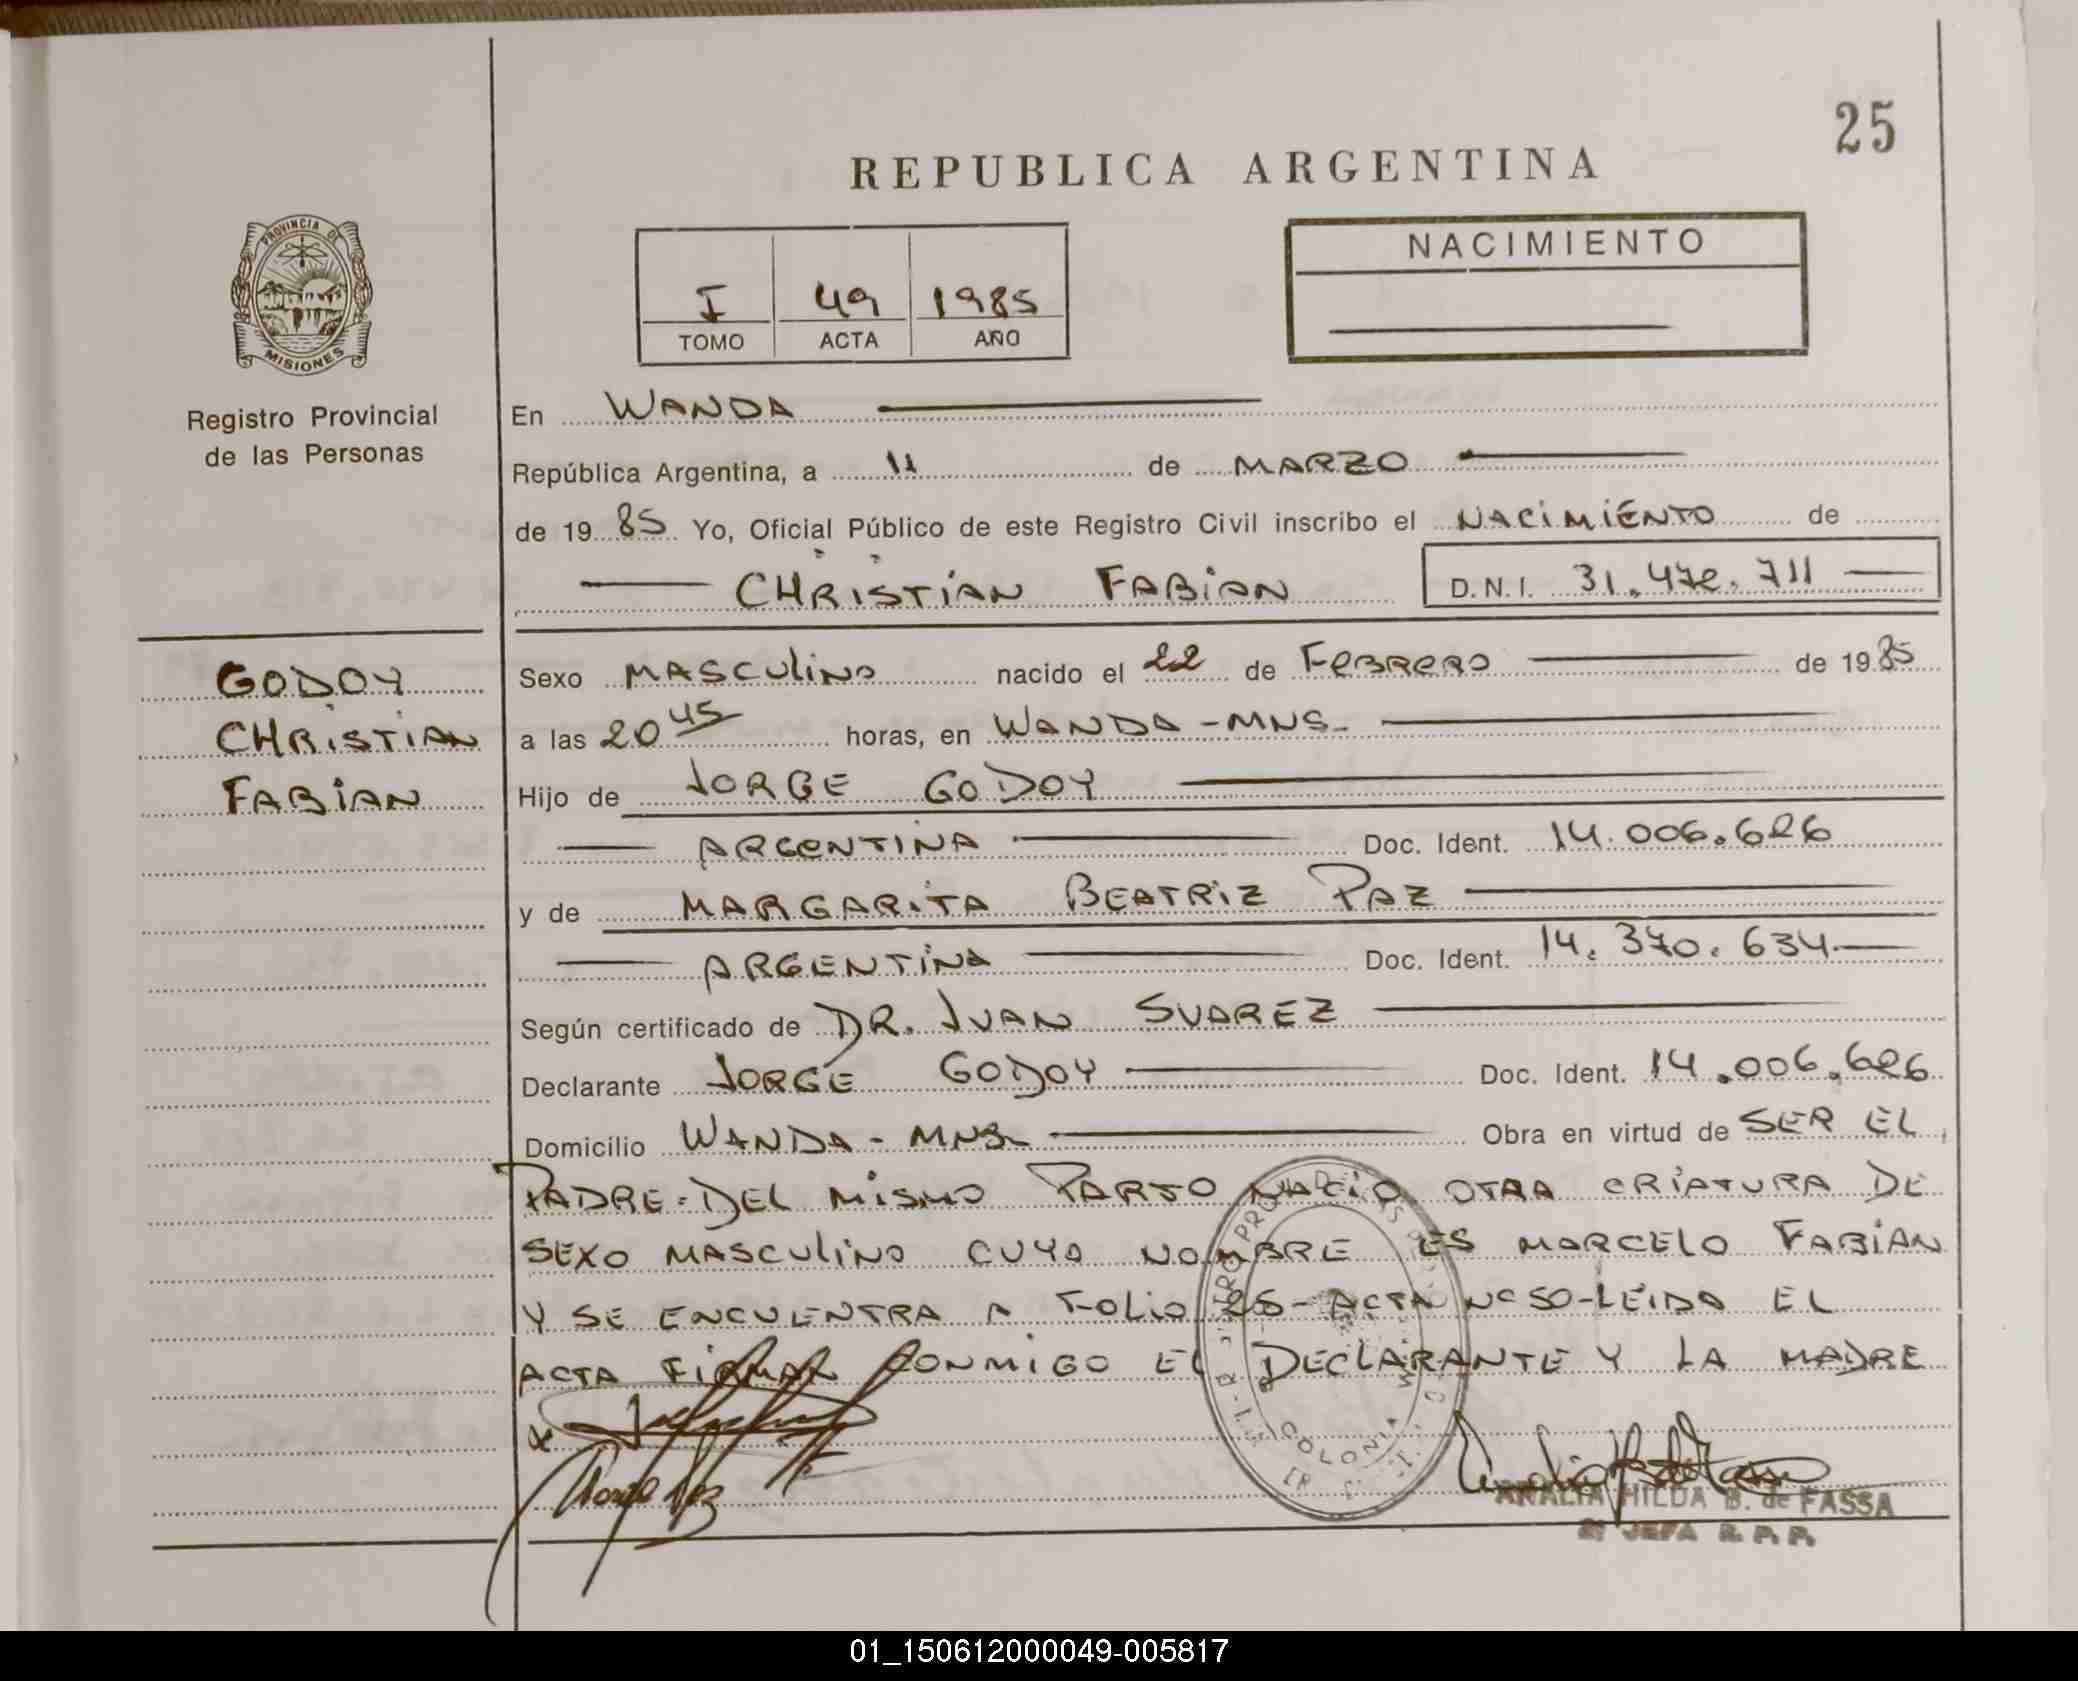 25
REPUBLICA ARGENTINA
PROVINCIA DE
MISIONES
Registro Provincial
de las Personas
I 49 1985
TOMO ACTA AÑO
NACIMIENTO
En WANDA
República Argentina, a 11 de MARZO
de 1985 Yo, Oficial Público de este Registro Civil inscribo el NACIMIENTO de
CHRISTIAN FABIAN D.N.I. 31.472.711
GODOY
CHRISTIAN
FABIAN
Sexo MASCULINO nacido el 22 de FEBRERO de 1985
a las 20 45 horas, en WANDA - MNS-
Hijo de JORGE GODOY
ARGENTINA Doc. Ident. 14.006.626
y de MARGARITA BEATRIZ PAZ
ARGENTINA Doc. Ident. 14.370.634
Según certificado de DR. JUAN SUAREZ
Declarante JORGE GODOY Doc. Ident. 14.006.626
Domicilio WANDA - MNS- Obra en virtud de SER EL
PADRE-DEL MISMO PARTO NACIO OTRA CRIATURA DE
SEXO MASCULINO CUYO NOMBRE ES MARCELO FABIAN
Y SE ENCUENTRA A FOLIO 25- ACTA Nº 50-LEIDA EL
ACTA FIRMAN CONMIGO EL DECLARANTE Y LA MADRE
COLONIA
ANALIA HILDA B. de FASSA
JEFA R. P. P.
01_150612000049-005817